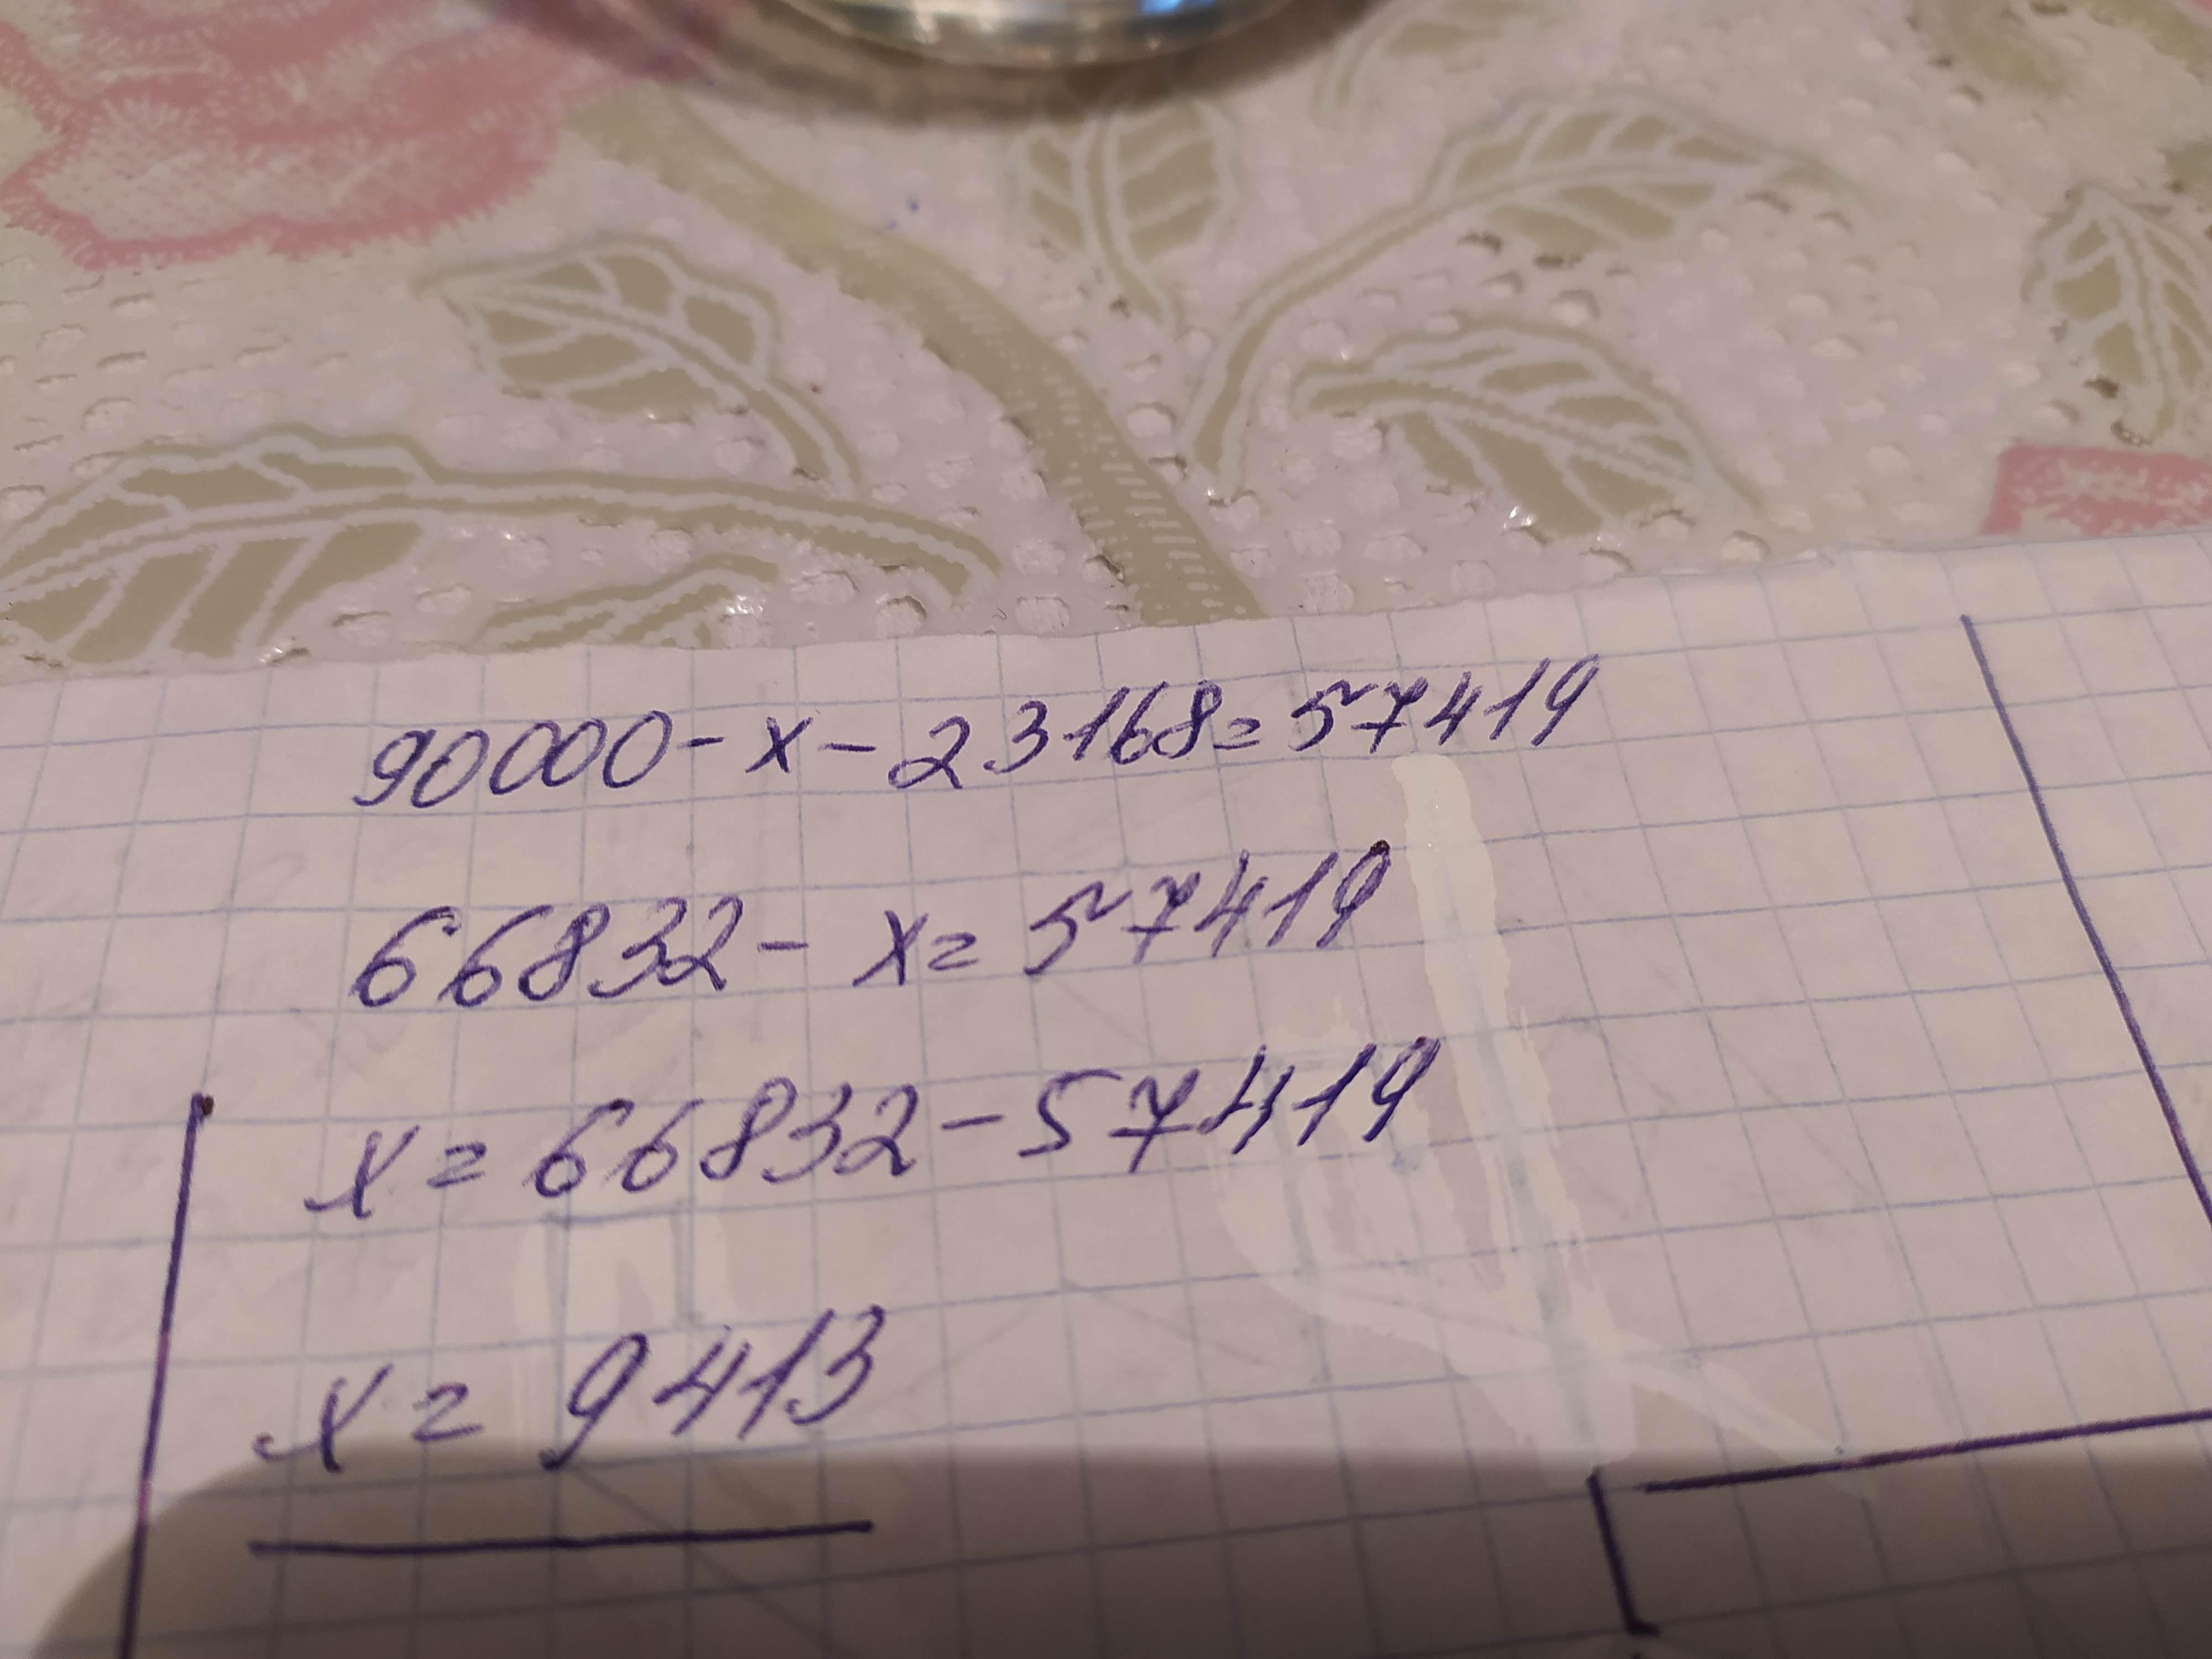 90000-x-23168=57419
66832-x=57419
x=66832-57419
x=9413